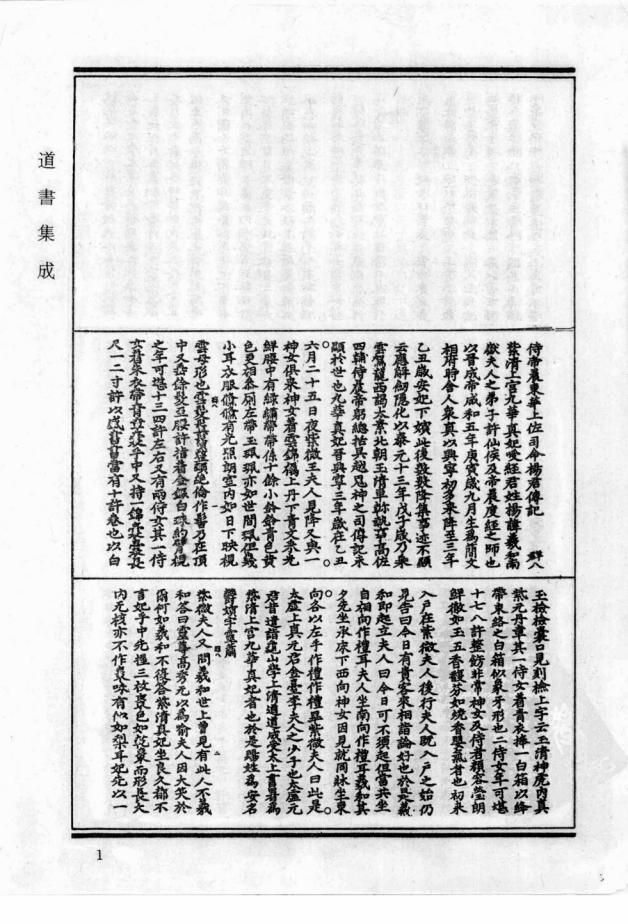 道書集成
侍帝晨東華上佐司命楊君傳記
紫清上宮九華真妃受經君姓楊諱羲和南
嶽夫人之弟子許仙侯及帝晨度經之師也
以晉成帝咸和五年庚寅歲九月生為簡文
相府時舍人衆真以興寧初多來降至三年
乙丑歲安妃下嬪此後數數降集事迹不顯
云應解劒隱化以泰元十三年戊子歲乃乘
雲駕龍西謁太素北朝玉清
四輔侍晨帝躬總括吳越兄神之司傳記未
顯於世也九華真妃晉興寧三年歲在乙丑
六月二十五日夜紫微王夫人見降又與一
神女俱來神女著雲錦襡上丹下青文彩光
鮮腰中有綠繡帶帶係十餘小鈴鈴青色黃
色更相參廁左帶玉珮珮亦如世間珮但幾
小耳衣服儵儵有光照朗室內如日下映視
雲母形也雲髮鬒鬒整頓絕倫作髻乃在頂
中又垂餘髮至腰許指著金鐶白珠約臂視
之年可堪十三四許左右又有兩侍女其一侍
女著朱衣帶青章囊手中又持一錦囊囊長
尺一二寸許以盛書書當有十許卷也以白
玉檢檢囊口見刻檢上字云玉清神虎內真
紫元丹章其一侍女著青衣捧一白箱以絳
帶束絡之白箱似象牙形也二侍女年可堪
十七八許整飭非常神女及侍者顏容瑩朗
鮮徹如玉五香馥芬如燒香嬰氣者也初來
入戶在紫微夫人後行夫人既入戶之始仍
見告曰今日有貴客來相詣論好也於是羲
和即起立夫人曰今日可不須起但當共坐
自相向作禮耳夫人坐南向作禮耳羲和其
夕先坐承床下西向神女因見就同牀坐東
向各以左手作禮作禮畢紫微夫人曰此是
太虛上真元君金臺李夫人之少女也太虛元
君昔遣詣龜山學上清道道成受太上書署為
紫清上宮九華真妃者也於是賜姓為安名
鬱嬪字靈蕭
紫微夫人又問羲和世上曾見有此人不羲
和答曰靈尊高秀元以為喻夫人因大笑於
爾何如羲和不復答紫清真妃坐良久都不
言妃手中先握三枚棗色如乾棗而形長大
內元核亦不作棗味有似如梨耳妃先以一
1